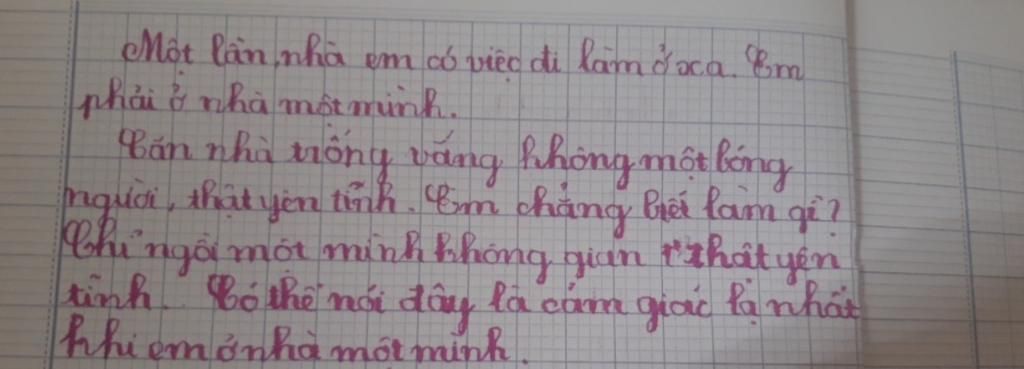 Một lần, nhà em có việc đi làm ở xa. Em
phải ở nhà một mình.
Căn nhà trống vắng không một bóng
người, thật yên tĩnh. Em chẳng biết làm gì?
Chỉ ngồi một mình không gian thật yên
tĩnh. Có thể nói đây là cảm giác lạ nhất
khi em ở nhà một mình.